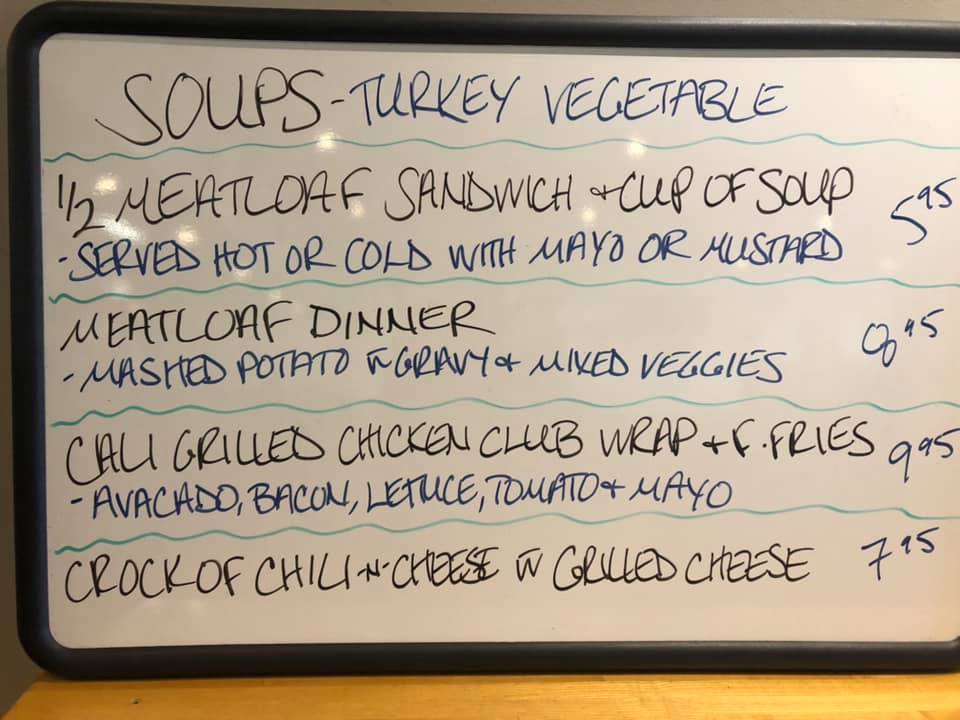 SOUPS - TURKEY VEGETABLE
1/2 MEATLOAF SANDWICH + CUP OF SOUP 5.95
- SERVED HOT OR COLD WITH MAYO OR MUSTARD
MEATLOAF DINNER 8.95
- MASHED POTATO W GRAVY + MIXED VEGGIES
CALI GRILLED CHICKEN CLUB WRAP + F. FRIES 9.95
- AVACADO, BACON, LETTUCE, TOMATO + MAYO
CROCK OF CHILI -N- CHEESE W GRILLED CHEESE 7.95